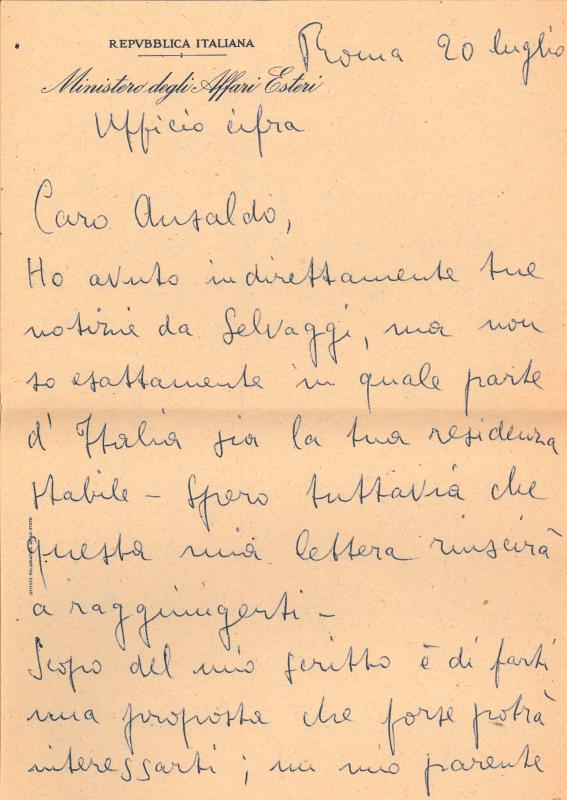 REPVBBLICA ITALIANA
Roma 20 luglio
Ministero degli Affari Esteri
Ufficio cifra
Caro Ansaldo,
Ho avuto indirettamente tue
notizie da Selvaggi, ma non
so esattamente in quale parte
d'Italia sia la tua residenza
stabile - Spero tuttavia che
questa mia lettera riuscirà
a raggiungerti -
Scopo del mio scritto è di farti
una proposta che forse potrà
interessarti; un mio parente
ISTITVTO POLIGRAFICO DELLO STATO